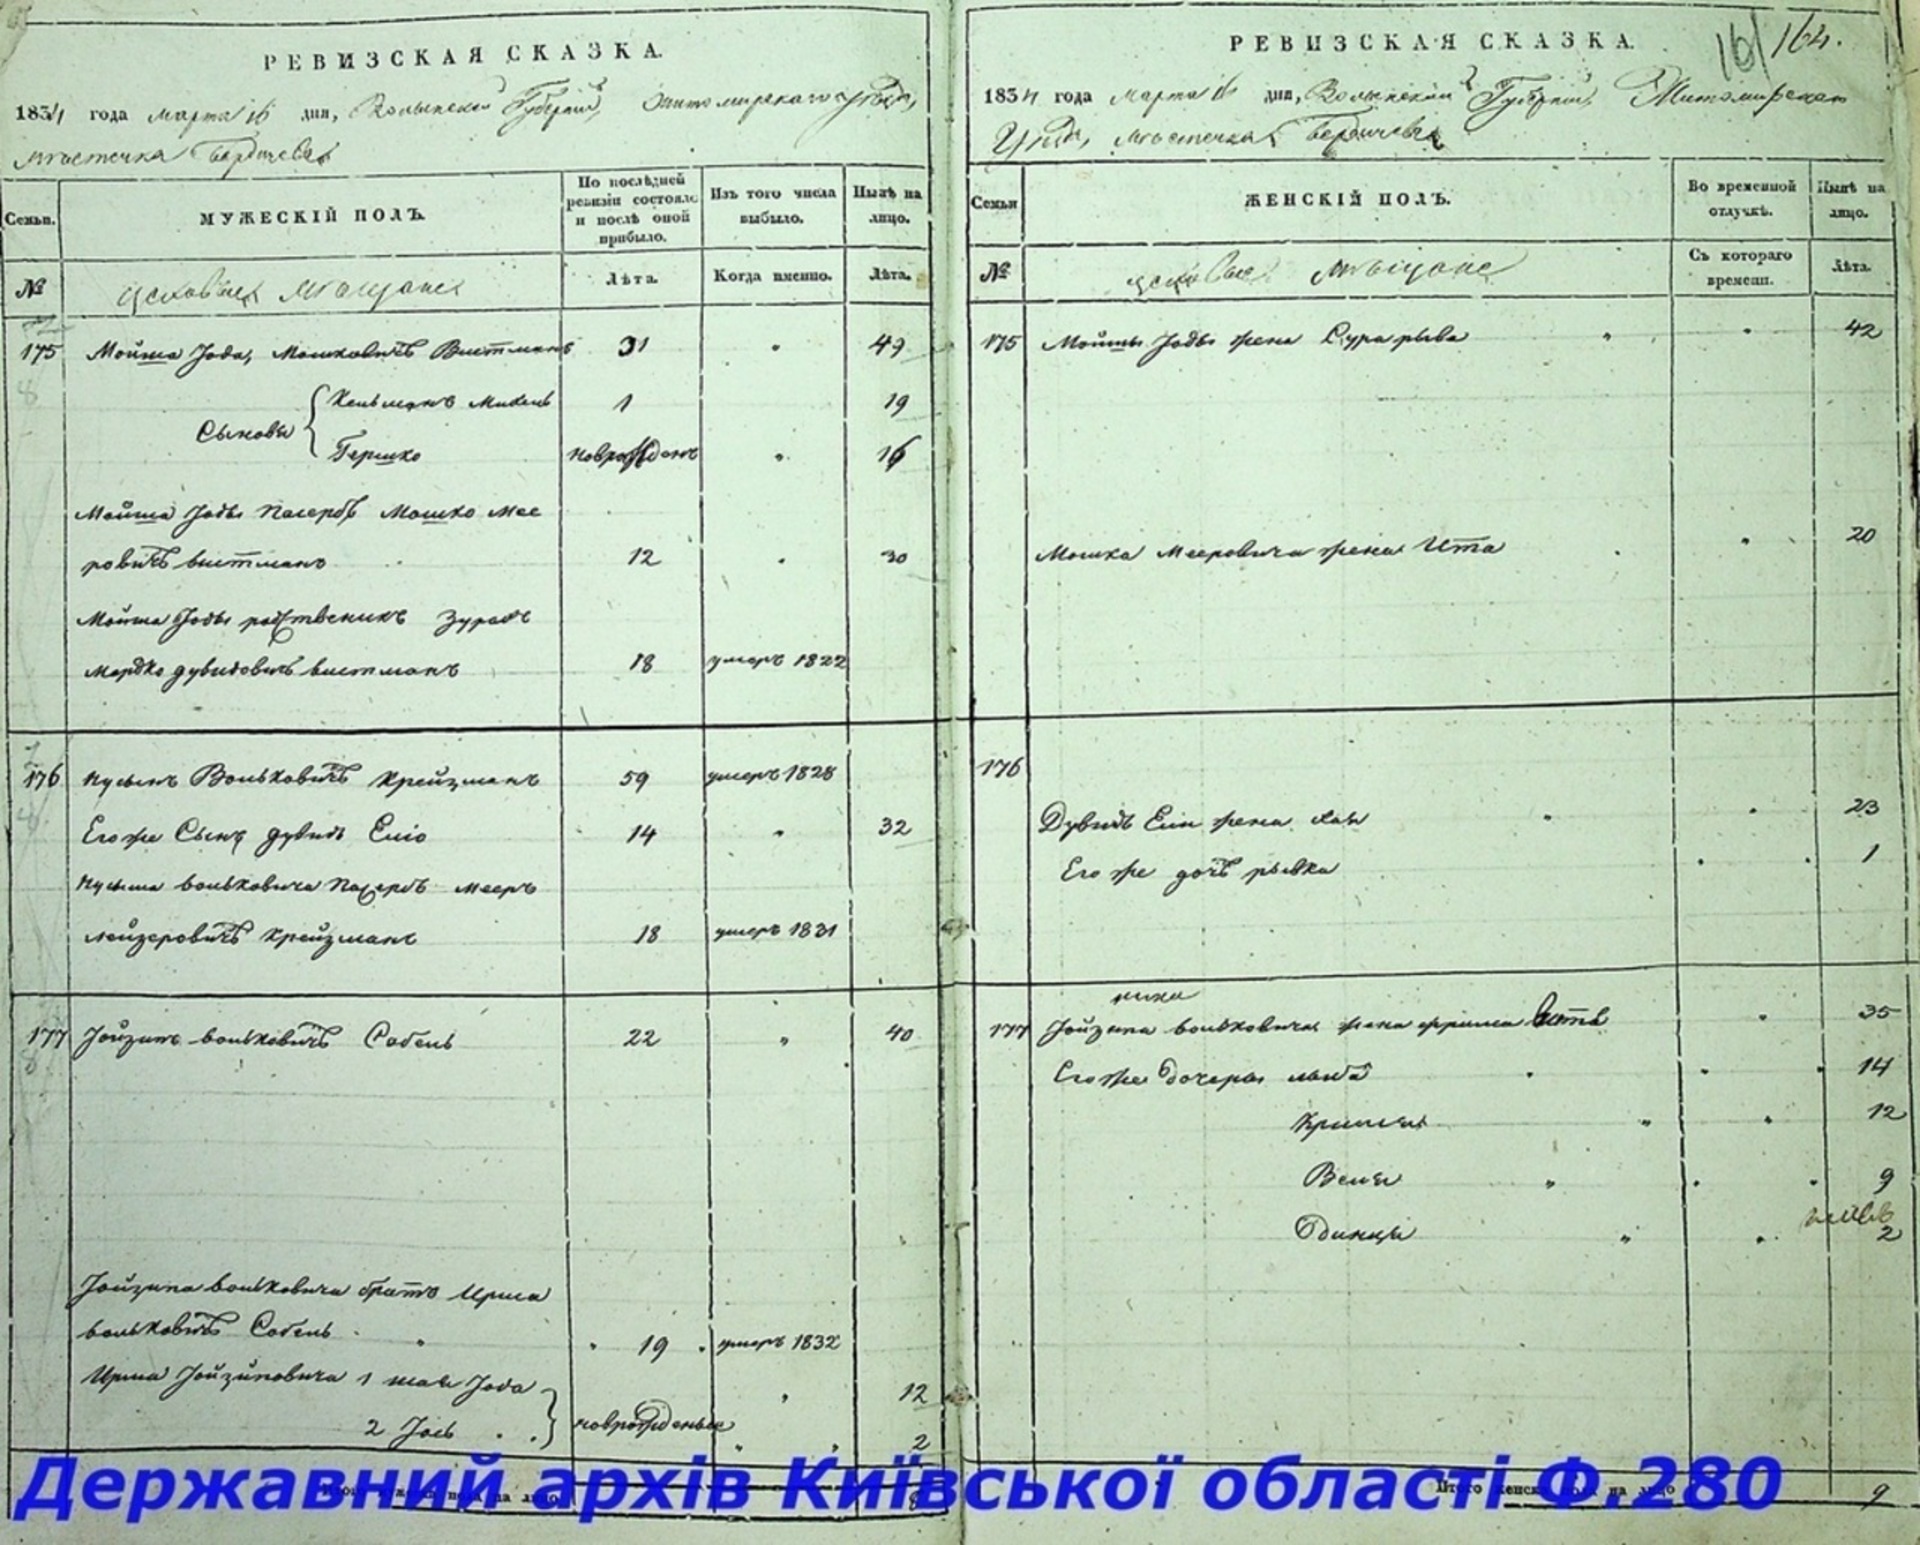 РЕВИЗСКАЯ СКАЗКА.
1834 года марта 16 дня, Волынской Губернии, Житомирскаго уезда,
местечка Бердичева
Семьи.
МУЖЕСКІЙ ПОЛЪ.
По послѣдней ревизіи состояло и послѣ оной прибыло.
Изъ того числа выбыло.
Нынѣ на лицо.
№
мѣщане
Лѣта.
Когда именно.
Лѣта.
175 Мойша Іода, Мошковичъ Витманъ 31 " 49
Сыновья
Кельманъ 1 19
Гершко новорожденъ " 16
Мойша Іоды пасербъ Мошко Мее
ровичъ витманъ 12 " 30
Мойша Іоды родственикъ
Мордко дувидовичъ витманъ 18 умеръ 1822
176 Нусынъ Вольковичъ Крейзманъ 59 умеръ 1828
Его же Сынъ дувидъ Еліо 14 " 32
Нусына вольковича пасербъ мееръ
лейзеровичъ крейзманъ 18 умеръ 1831
177 Вольковичъ Собель 22 " 40
вольковича братъ
вольковичъ Собель " 19 умеръ 1832
1 Іода " 12
2 Іось новорожденные " " 2
Итого мужеска пола на лицо 8
РЕВИЗСКАЯ СКАЗКА.
164.
1834 года марта 16 дня, Волынской Губернии, Житомирскаго
Уезда, местечка Бердичева
Семьи
ЖЕНСКІЙ ПОЛЪ.
Во временной отлучкѣ.
Нынѣ на лицо.
№
мѣщане
Съ котораго времени.
Лѣта.
175 Мойши Іоды жена Сура рыва " " 42
Мошка Мееровича жена Ита " 20
176
Дувидъ Еліи жена Хая " " 23
Его же дочь рывка " " 1
177 вольковича жена " 35
Его же дочеры " " 14
" " 12
Веля " " 9
Одинцы " " 2
Итого женска пола на лицо 9
Державний архів Київської області Ф.280